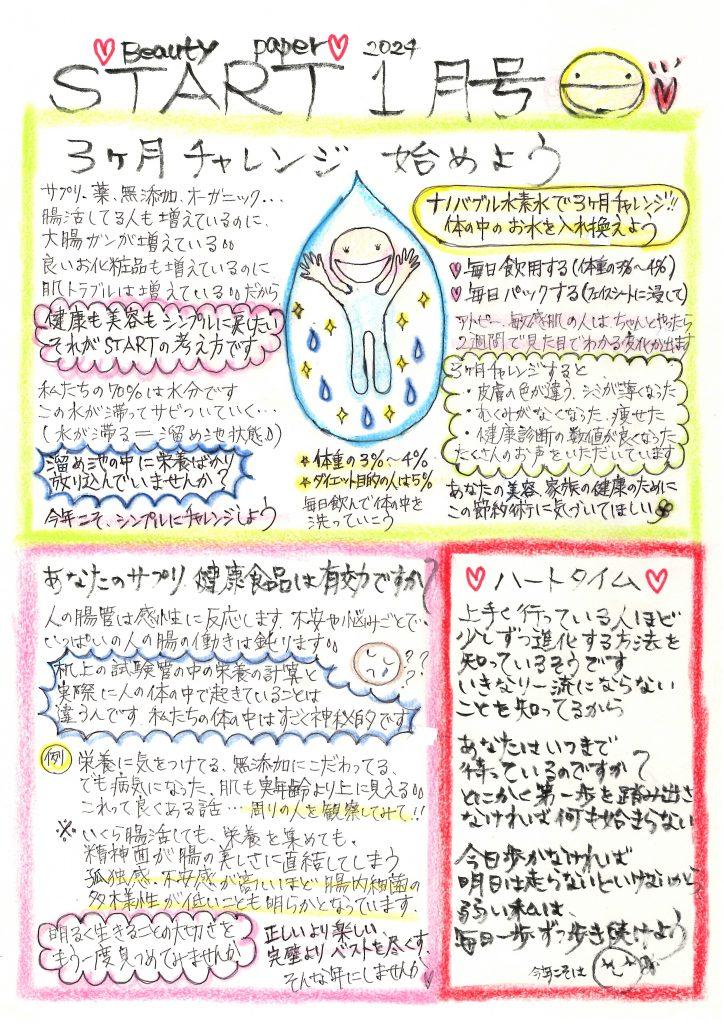 Beauty paper 2024
START 1月号
3ヶ月チャレンジ 始めよう
サプリ、薬、無添加、オーガニック・・・
腸活してる人も増えているのに、
大腸ガンが増えている
良いお化粧品も増えているのに
肌トラブルは増えている だから
健康も美容もシンプルに戻したい
それがSTARTの考え方です
私たちの70%は水分です
この水が滞ってサビついていく・・・
(水が滞る=溜め池状態)
溜め池の中に栄養ばかり
放り込んでいませんか?
今年こそ、シンプルにチャレンジしよう
*体重の3%〜4%
*ダイエット目的の人は5%
毎日飲んで体の中を
洗っていこう
ナノバブル水素水で3ヶ月チャレンジ!!
体の中のお水を入れ換えよう
毎日飲用する(体重の3%〜4%)
毎日パックする(フェイスシートに浸して)
アトピー、敏感肌の人は、ちゃんとやったら
2週間で見た目でわかる変化が出ます
3ヶ月チャレンジすると、
・皮膚の色が違う、シミが薄くなった
・むくみがなくなった、痩せた
・健康診断の数値が良くなった
たくさんのお声をいただいています
あなたの美容、家族の健康のために
この節約術に気づいてほしい
あなたのサプリ、健康食品は有効ですか?
人の腸管は感性に反応します、不安や悩みごとで
いっぱいの人の腸の働きは鈍ります
机上の試験管の中の栄養の計算と
実際に人の体の中で起きていることは
違うんです 私たちの体の中はすごく神秘的です
??
??
例 栄養に気をつけてる、無添加にこだわってる、
でも病気になった、肌も実年齢より上に見える
これって良くある話・・・周りの人を観察してみて!!
※いくら腸活しても、栄養を集めても、
精神面が腸の美しさに直結してしまう
孤独感、不安感が高いほど腸内細菌の
多様性が低いことも明らかとなっています
明るく生きることの大切さを
もう一度見つめてみませんか
正しいより楽しい、
完璧よりベストを尽くす、
そんな年にしませんか
ハートタイム
上手く行っている人ほど
少しずつ進化する方法を
知っているそうです
いきなり一流にならない
ことを知ってるから
あなたはいつまで
待っているのですか?
とにかく第一歩を踏み出さ
なければ何も始まらない
今日歩かなければ
明日は走らないといけないから
弱い私は、
毎日一歩ずつ歩き続けよう
今年こそは